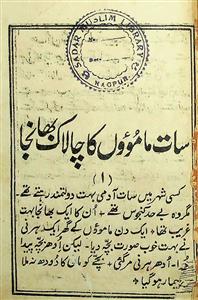 SADAR MUSLIM LIBRARY
NAGPUR
سات ماموؤں کا چالاک بھانجا
(۱)
کسی شہر میں سات آدمی بہت دولتمند رہتے تھے
مگر وہ بے حد کنجوس تھے۔ اُن کا ایک بھانجا بہت
غریب تھا۔ ایک دن ماموؤں کے گھر ایک ہرنی
نے بہت خوب صورت بچہ دیا۔ لیکن اِدھر بچہ پیدا
ہوا۔ اُدھر ہرنی مر گئی۔ بچے کو ماں کا دودھ نہ ملا
بیمار ہو گیا۔